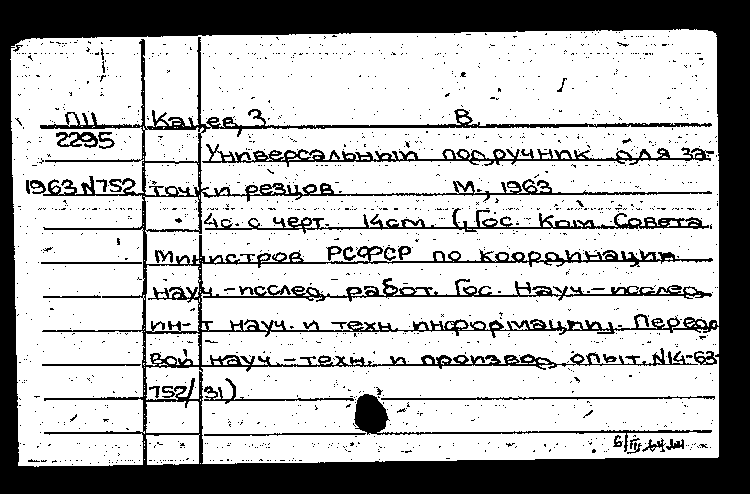 П11 Кацев, З В.
2295
Универсальный подручник для за-
1963 N752 точки резцов. М., 1963
4с. с черт. 14 cm. ([Гос. Ком. Совета
Министров РСФСР по координации
науч.-исслед. работ. Гос. Науч.-исслед.
ин-т науч. и техн. информации]. Передо
вой науч.-техн. и производ. опыт. N14-63-
752/31)